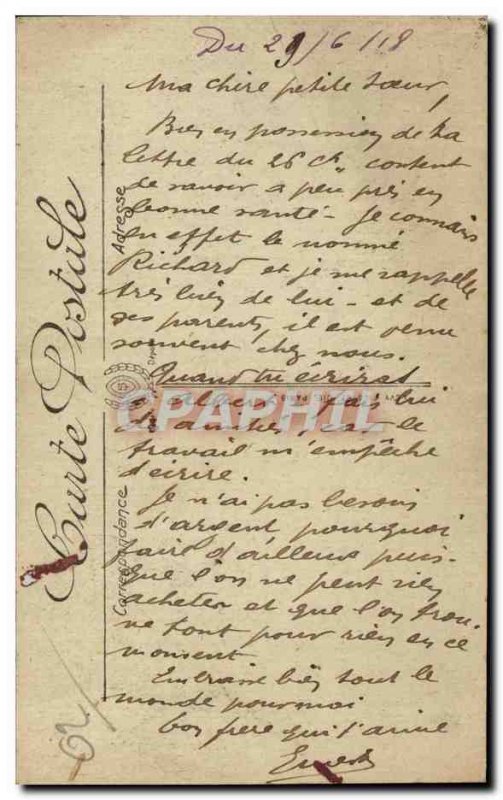 Du 29/6/18
Ma chère petite sœur,
Bien en possession de ta
lettre du 26 ct, content
de savoir à peu près en
bonne santé - Je connais
en effet le nommé
Richard et je me rappelle
très bien de lui - et de
ses parents, il est venu
souvent chez nous.
Quand tu écriras
lui
le
travail m'empêche
d'écrire.
Je n'ai pas besoin
d'argent, pourquoi
faire d'ailleurs puis-
que l'on ne peut rien
acheter et que l'on trou-
ve tout pour rien en ce
moment
Embrasse bien tout le
monde pour moi
ton frère qui t'aime
Ernest
Carte Postale
Adresse
Correspondance
CPAPHIL
62